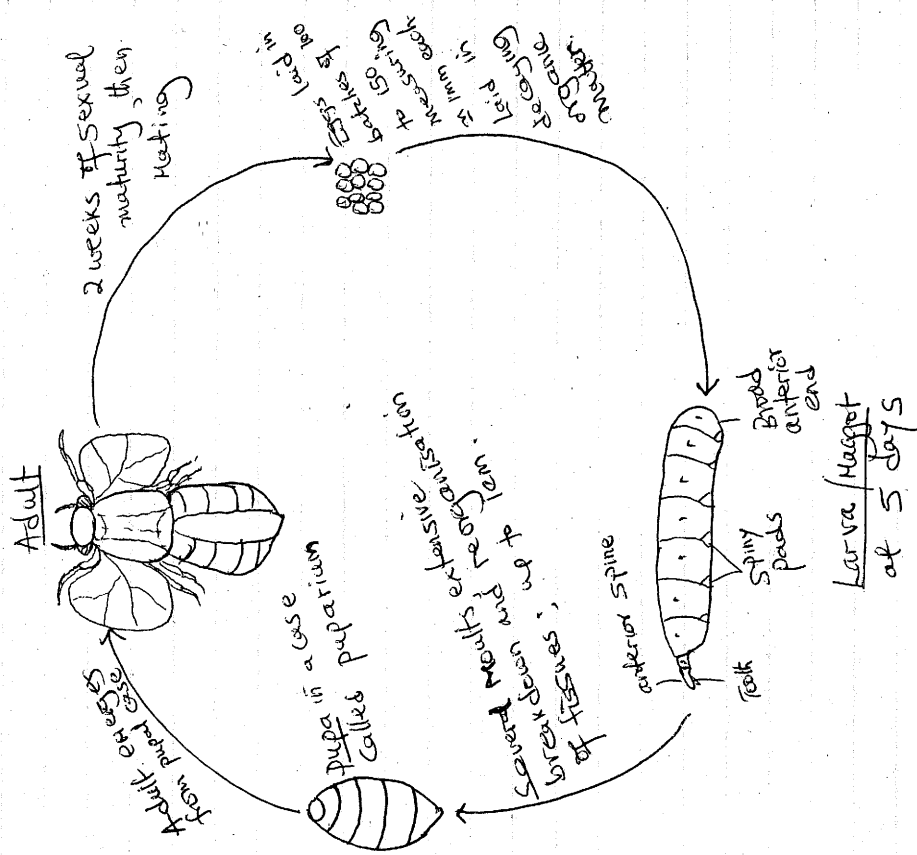 Adult
2 weeks of sexual
maturity, then
Mating
Eggs laid in
batches of 100
to 150
measuring
≈ 1mm each
laid in
decaying
organic
matter.
Broad
anterior
end
Spiny
pads
anterior spine
Tooth
Larva/Maggot
at 5 days
Several moults extensive
breakdown and reorganisation
of tissues; up to 1cm.
pupa in a case
called puparium
Adult emeges
from pupal case